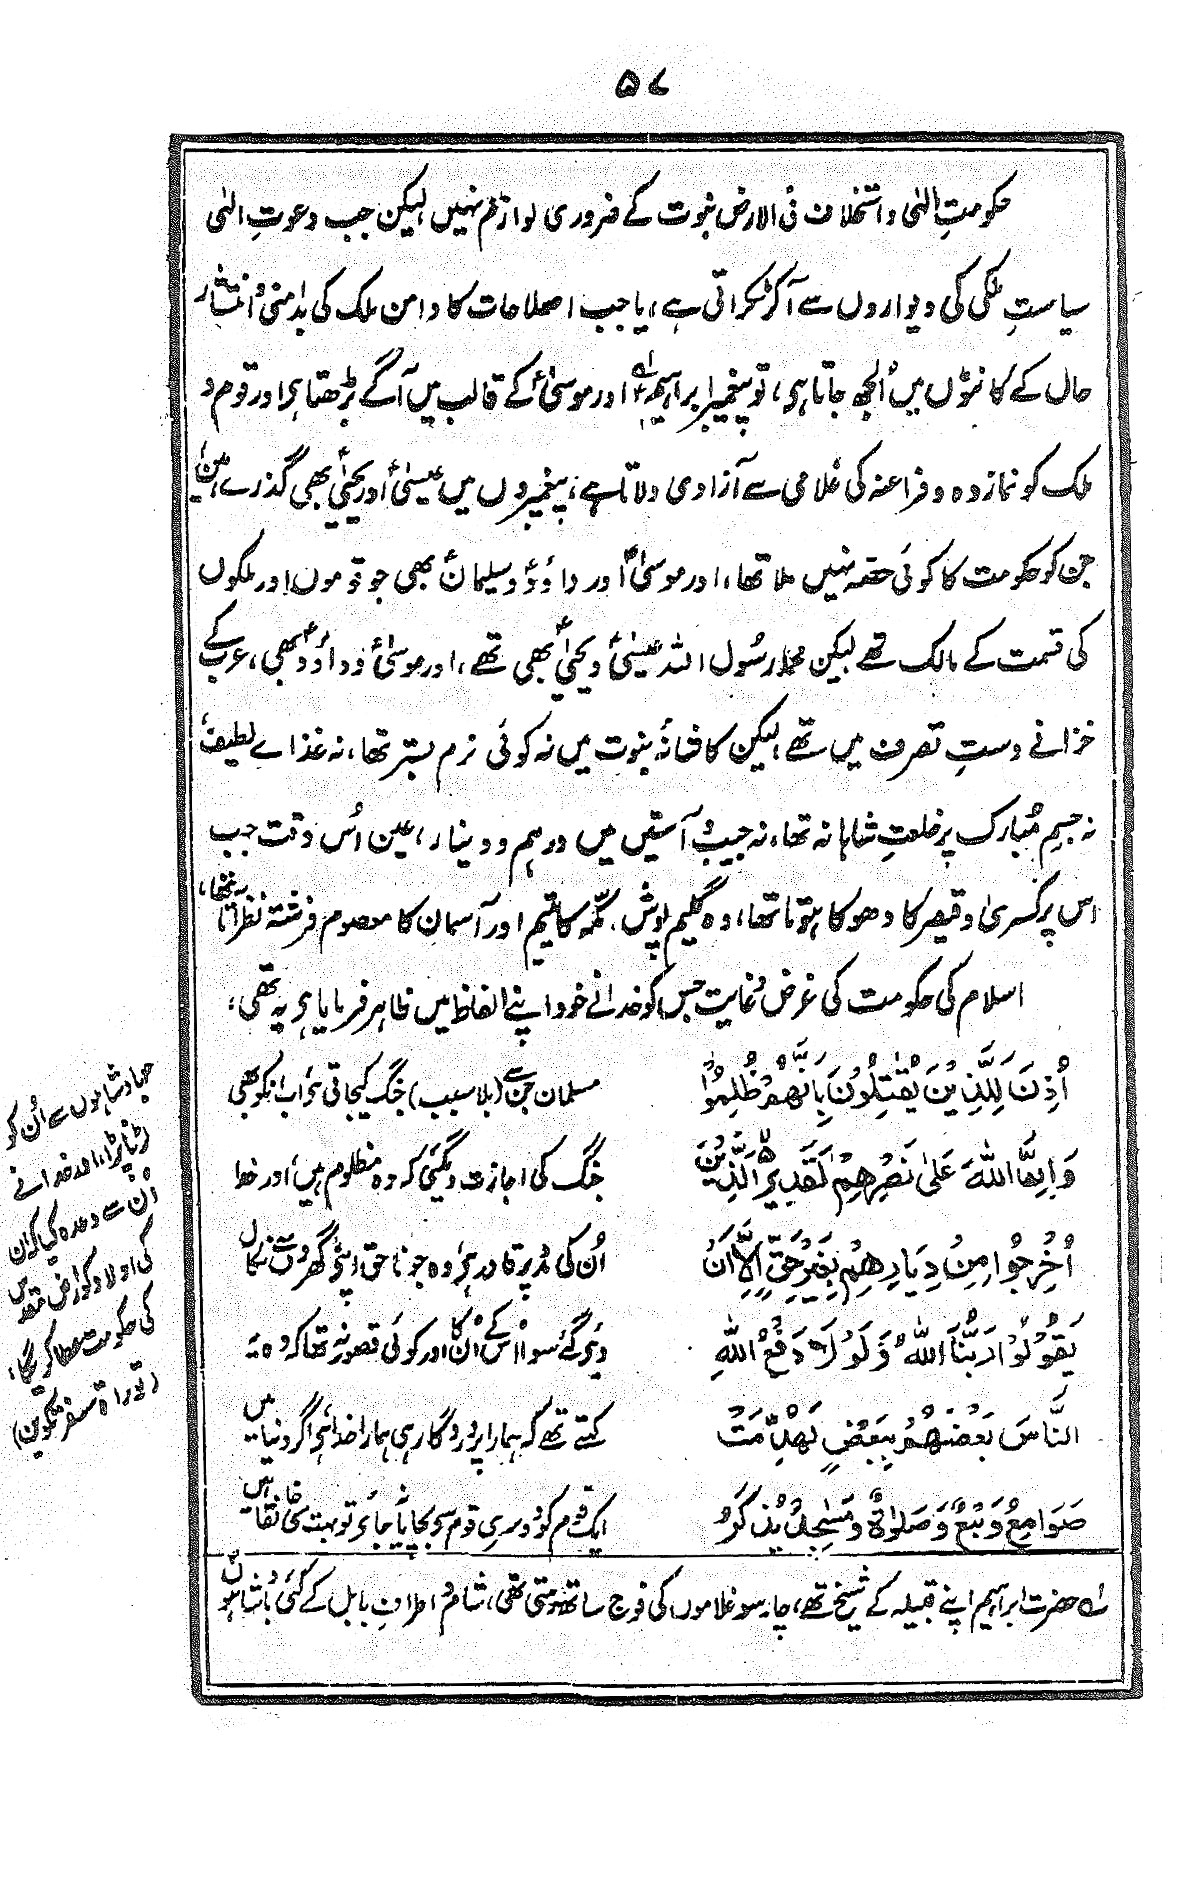 ۵۷
حکومتِ الٰہی و استخلاف فی الارض نبوت کے ضروری لوازم نہیں، لیکن جب دعوتِ الٰہی
سیاستِ ملکی کی دیواروں سے آکر ٹکراتی ہے، یا جب اصلاحات کا دامن ملک کی بدامنی و انتشار
حال کے کانٹوں میں اُلجھ جاتا ہی، تو پیغمبر ابراہیمؑ اور موسیٰؑ کے قالب میں آگے بڑھتا ہی اور قوم و
ملک کو نماردہ و فراعنہ کی غلامی سے آزادی دلاتا ہے، پیغمبروں میں عیسیٰؑ اور یحییٰؑ بھی گذرے ہیں
جن کو حکومت کا کوئی حصہ نہیں ملا تھا، اور موسیٰؑ اور داؤدؑ و سلیمانؑ بھی جو قوموں اور ملکوں
کی قسمت کے مالک تھے لیکن محمد رسول اللہ عیسیٰؑ و یحییٰؑ بھی تھے، اور موسیٰؑ و داؤدؑ بھی، عرب کے
خزانے دستِ تصرف میں تھے، لیکن کاشانۂ نبوت میں نہ کوئی نرم بستر تھا، نہ غذاے لطیف،
نہ جسمِ مُبارک پر خلعتِ شاہانہ تھا، نہ جیب و آستیں میں درہم و دینار، عین اُس وقت جب
اس پر کسریٰ و قیصر کا دھوکا ہوتا تھا، وہ گلیم پوش، مکّہ کا یتیم اور آسمان کا معصوم فرشتہ نظر آتا تھا،
اسلام کی حکومت کی غرض و غایت جس کو خدا نے خود اپنے الفاظ میں ظاہر فرمایا ہی یہ تھی،
اُذِنَ لِلَّذِیْنَ یُقٰتَلُوْنَ بِاَنَّهُمْ ظُلِمُوْا
وَاِنَّ اللّٰهَ عَلٰی نَصْرِهِمْ لَقَدِیْرُ اِۨلَّذِیْنَ
اُخْرِجُوْا مِنْ دِیَارِهِمْ بِغَیْرِ حَقٍّ اِلَّا اَنْ
یَّقُوْلُوْا رَبُّنَا اللّٰهُ وَلَوْلَا دَفْعُ اللّٰهِ
النَّاسَ بَعْضَهُمْ بِبَعْضٍ لَهُدِّمَتْ
صَوَامِعُ وَبِیَعٌ وَصَلَوٰةٌ وَمَسٰجِدُ یُذْکَرُ
مسلمان جن سے (بلا سبب) جنگ کیجاتی ہی، اب انکو بھی
جنگ کی اجازت دیگئی کہ وہ مظلوم ہیں، اور خدا
اُن کی مدد پر قادر ہی، وہ جو ناحق اپنے گھروں سے نکال
دیے گئے سوا اس کے اُن کا اور کوئی قصور نہ تھا کہ وہ یہ
کہتے تھے کہ ہمارا پروردگار ہی ہمارا خدا ہی، اگر دنیا میں
ایک قوم کو دوسری قوم سے بچایا نہ جائے تو بہت سی خانقاہیں
لہ حضرت ابراہیم اپنے قبیلہ کے شیخ تھے، چار سو غلاموں کی فوج ساتھ ہوتی تھی، شام و اطراف بابل کے کئی بادشاہوں
جہاد شاہوں سے اُن کو
لڑنا پڑا، اور خدا نے
اُن سے وعدہ کیا کہ ان
کی اولاد کو ارضِ مقدس
کی حکومت عطا کریگا،
(توراة سفر تکوین)